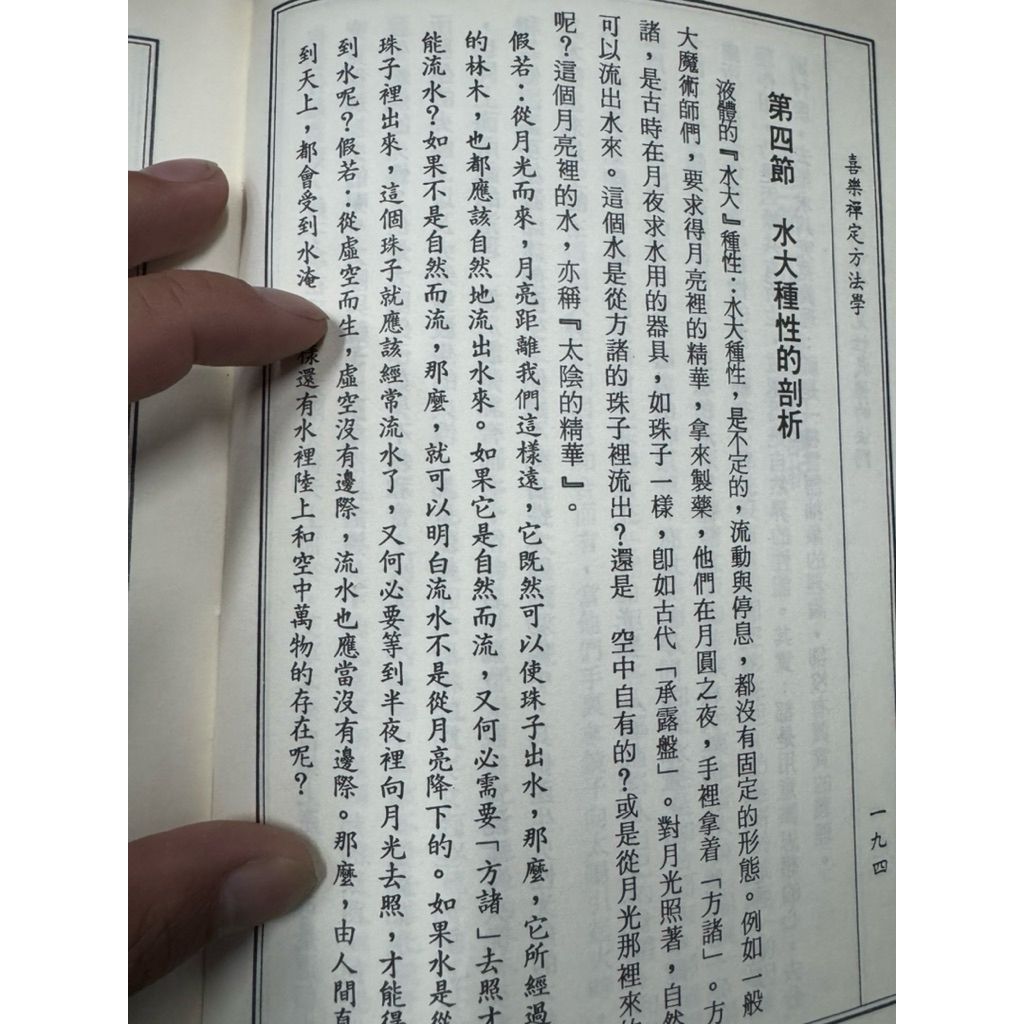 喜樂禪定方法學
一九四
第四節　水大種性的剖析
液體的『水大』種性：水大種性，是不定的，流動與停息，都沒有固定的形態。例如一般
大魔術師們，要求得月亮裡的精華，拿來製藥，他們在月圓之夜，手裡拿着「方諸」。方
諸，是古時在月夜求水用的器具，如珠子一樣，即如古代「承露盤」。對月光照著，自然
可以流出水來。這個水是從方諸的珠子裡流出？還是　空中自有的？或是從月光那裡來的
呢？這個月亮裡的水，亦稱『太陰的精華』。
假若：從月光而來，月亮距離我們這樣遠，它既然可以使珠子出水，那麼，它所經過
的林木，也都應該自然地流出水來。如果它是自然而流，又何必需要「方諸」去照才
能流水？如果不是自然而流，那麼，就可以明白流水不是從月亮降下的。如果水是從
珠子裡出來，這個珠子就應該經常流水了，又何必要等到半夜裡向月光去照，才能得
到水呢？假若：從虛空而生，虛空沒有邊際，流水也應當沒有邊際。那麼，由人間直
到天上，都會受到水淹　樣還有水裡陸上和空中萬物的存在呢？